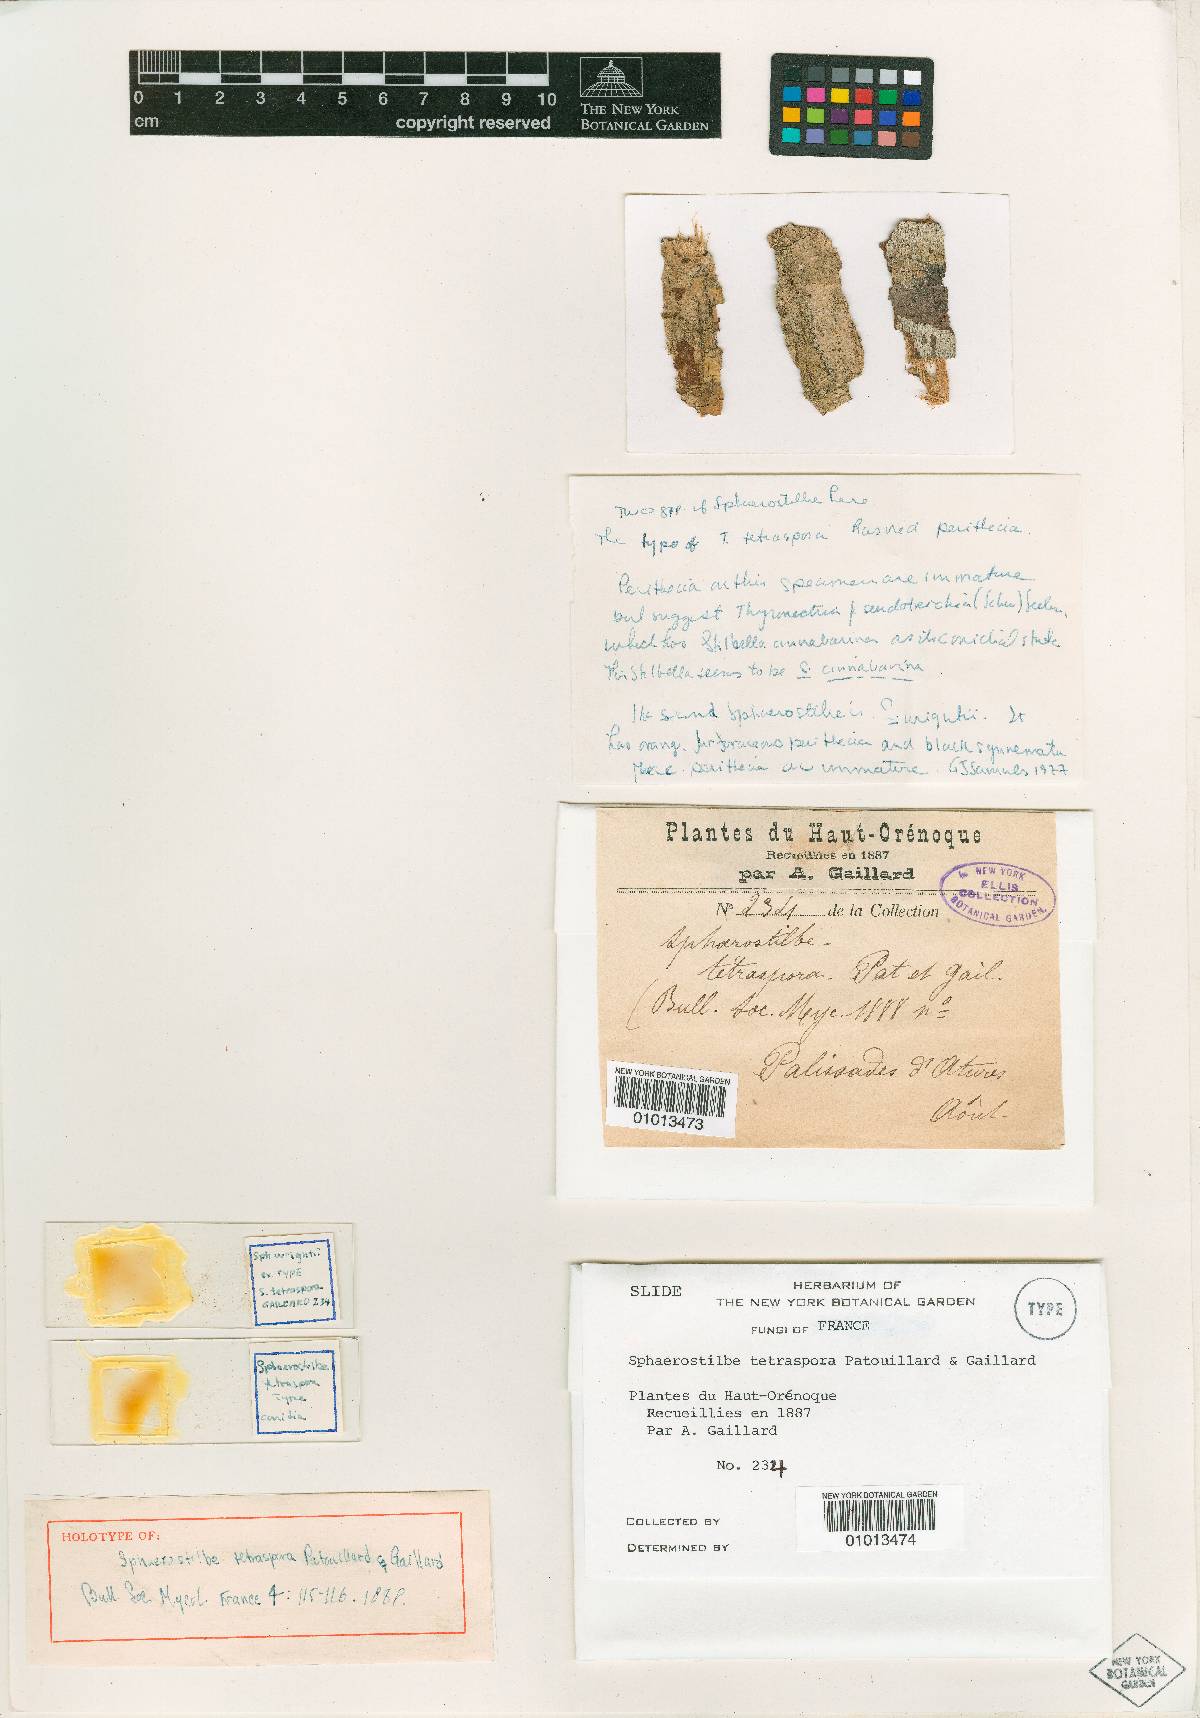 0 1 2 3 4 5 6 7 8 9 10
cm
copyright reserved
THE NEW YORK
BOTANICAL GARDEN
Two spp. of Sphaerostilbe here
The type of T. tetraspora has no perithecia.
Perithecia on this specimen are immature
but suggest Thyronectria pseudotrichia (Schw) Seeler,
which has Stilbella cinnabarina as its conidial state
This Stilbella seems to be S. cinnabarina
The second Sphaerostilbe is S. wrightii. It
has orange furfuraceous perithecia and black synnemata
These perithecia are immature. GJSamuels 1977
Plantes du Haut-Orénoque
Recueillies en 1887
par A. Gaillard
No 234 de la Collection
NEW YORK
ELLIS
COLLECTION
BOTANICAL GARDEN.
Sphærostilbe
tetraspora Pat et Gail.
(Bull. Soc. Myc. 1888 no
Palissades d'Atures
Août
NEW YORK BOTANICAL GARDEN
01013473
Sph wrightii
ex TYPE
S. tetraspora
GAILLARD 234
Sphaerostilbe
tetraspora
Type
conidia
HOLOTYPE OF:
Sphaerostilbe tetraspora Patouillard & Gaillard
Bull. Soc. Mycol. France 4: 115-116. 1888.
SLIDE
HERBARIUM OF
THE NEW YORK BOTANICAL GARDEN
FUNGI OF FRANCE
TYPE
Sphaerostilbe tetraspora Patouillard & Gaillard
Plantes du Haut-Orénoque
Recueillies en 1887
Par A. Gaillard
No. 234
COLLECTED BY
DETERMINED BY
NEW YORK BOTANICAL GARDEN
01013474
NEW YORK
BOTANICAL
GARDEN